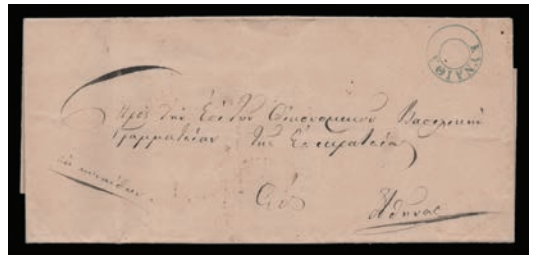 ΚΥΝΑΙΘΑ
Πρὸς τὴν Ἐπὶ τῶν Οἰκονομικῶν Βασιλικὴν
Γραμματείαν τῆς Ἐπικρατείας
Εἰς
Ἀθήνας